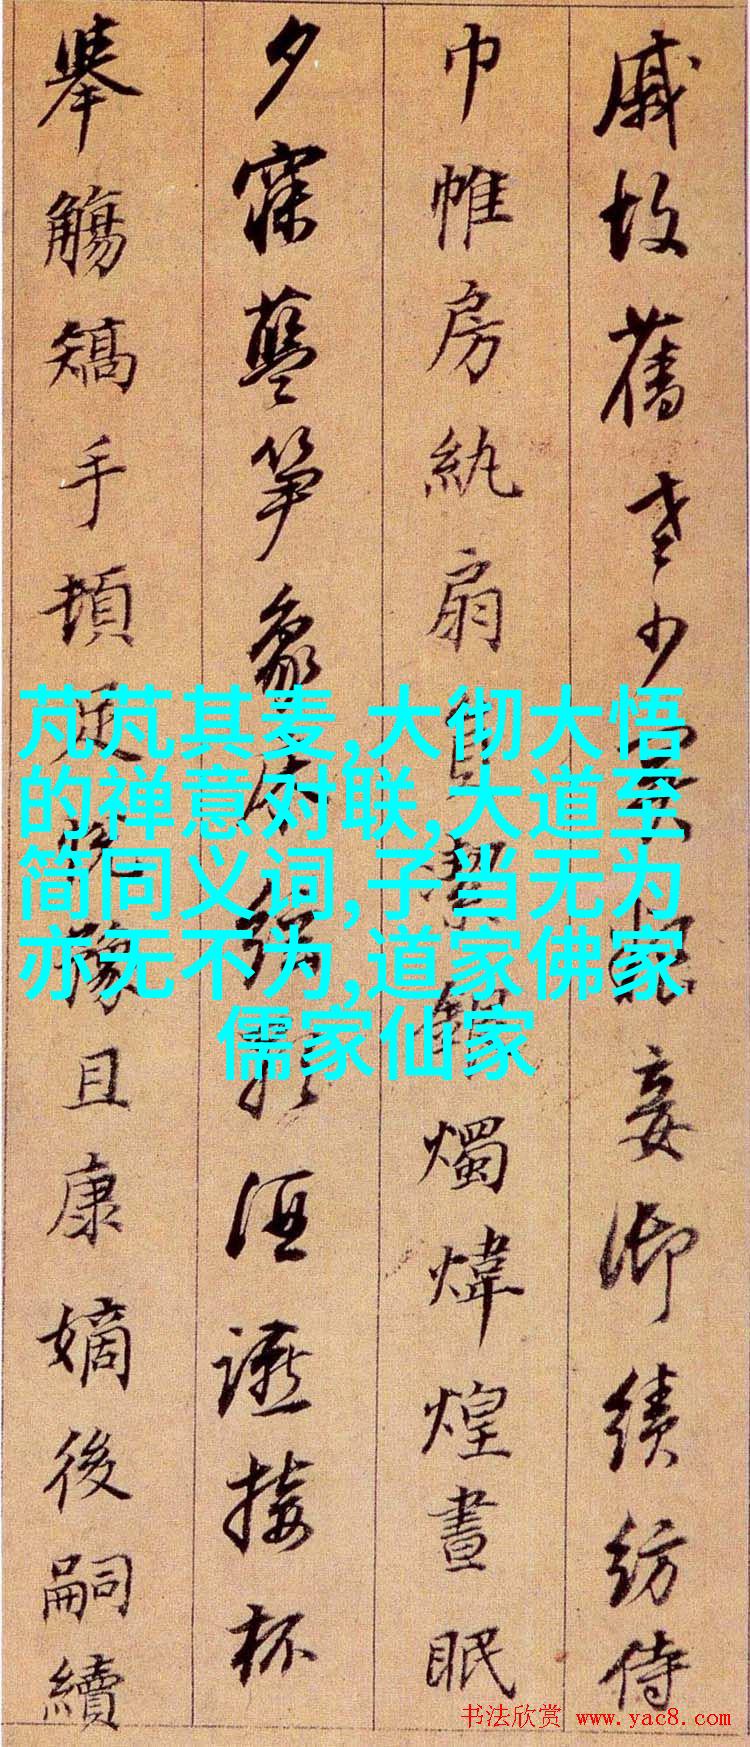 戚故舊老少異粮妾御績紡侍
巾帷房紈扇員絜銀燭煒煌晝眠
夕寐藍笋象床絃歌酒讌接杯
舉觴矯手頓足悅豫且康嫡後嗣續
芃芃其麦,大彻大悟
的禅意对联,大道至
简同义词,子当无为
亦无不为,道家佛家
儒家仙家
书法欣赏 www.yac8.com